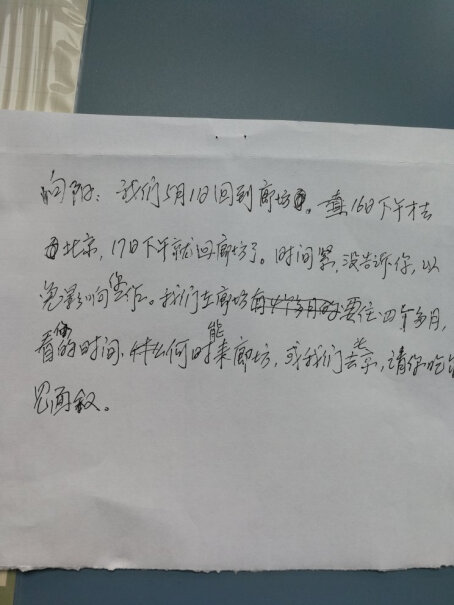 向阳:我们5月1日回到廊坊。16日下午才去
北京,17日下午就回廊坊了。时间紧,没告诉你,以
免影响工作。我们在廊坊要住四个多月,
看你的时间,什么何时能来廊坊,或我们去北京,请你吃
见面叙。